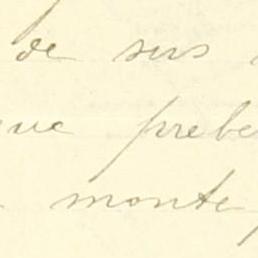 de sus
que prebe
monte